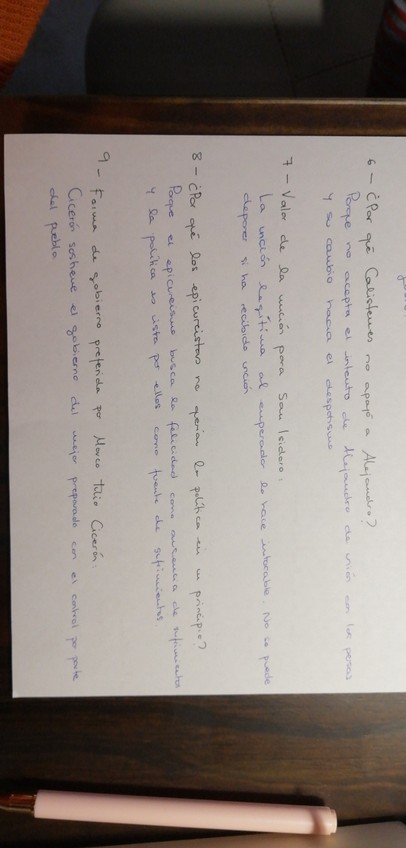 6 - ¿Por qué Calístenes no apoyó a Alejandro?
Porque no acepta el intento de Alejandro de unión con los persas
y su cambio hacia el despotismo
7 - Valor de la unción para San Isidoro:
La unción legitima al emperador lo hace intocable. No se puede
deponer si ha recibido unción
8 - ¿Por qué los epicureistas no querían la política en un principio?
Porque el epicureismo busca la felicidad como ausencia de sufrimientos
y la política es vista por ellos como fuente de sufrimientos
9 - Forma de gobierno preferida por Marco Tulio Cicerón.
Cicerón sostiene el gobierno del mejor preparado con el control por parte
del pueblo